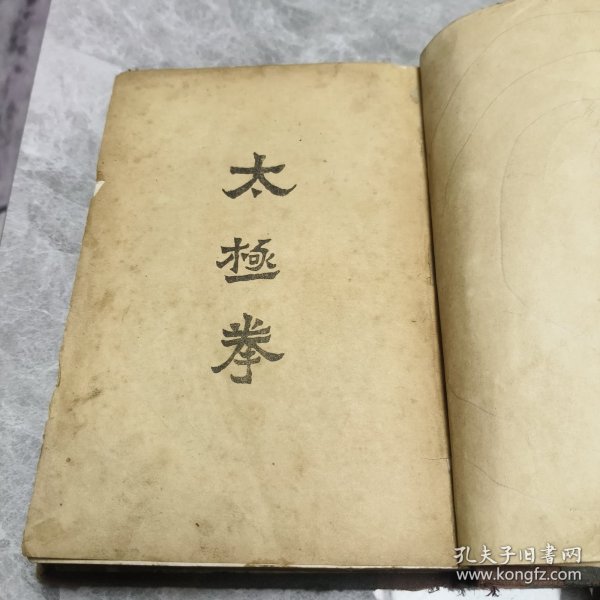 太
極
拳
孔夫子旧書网
www.kongfz.com